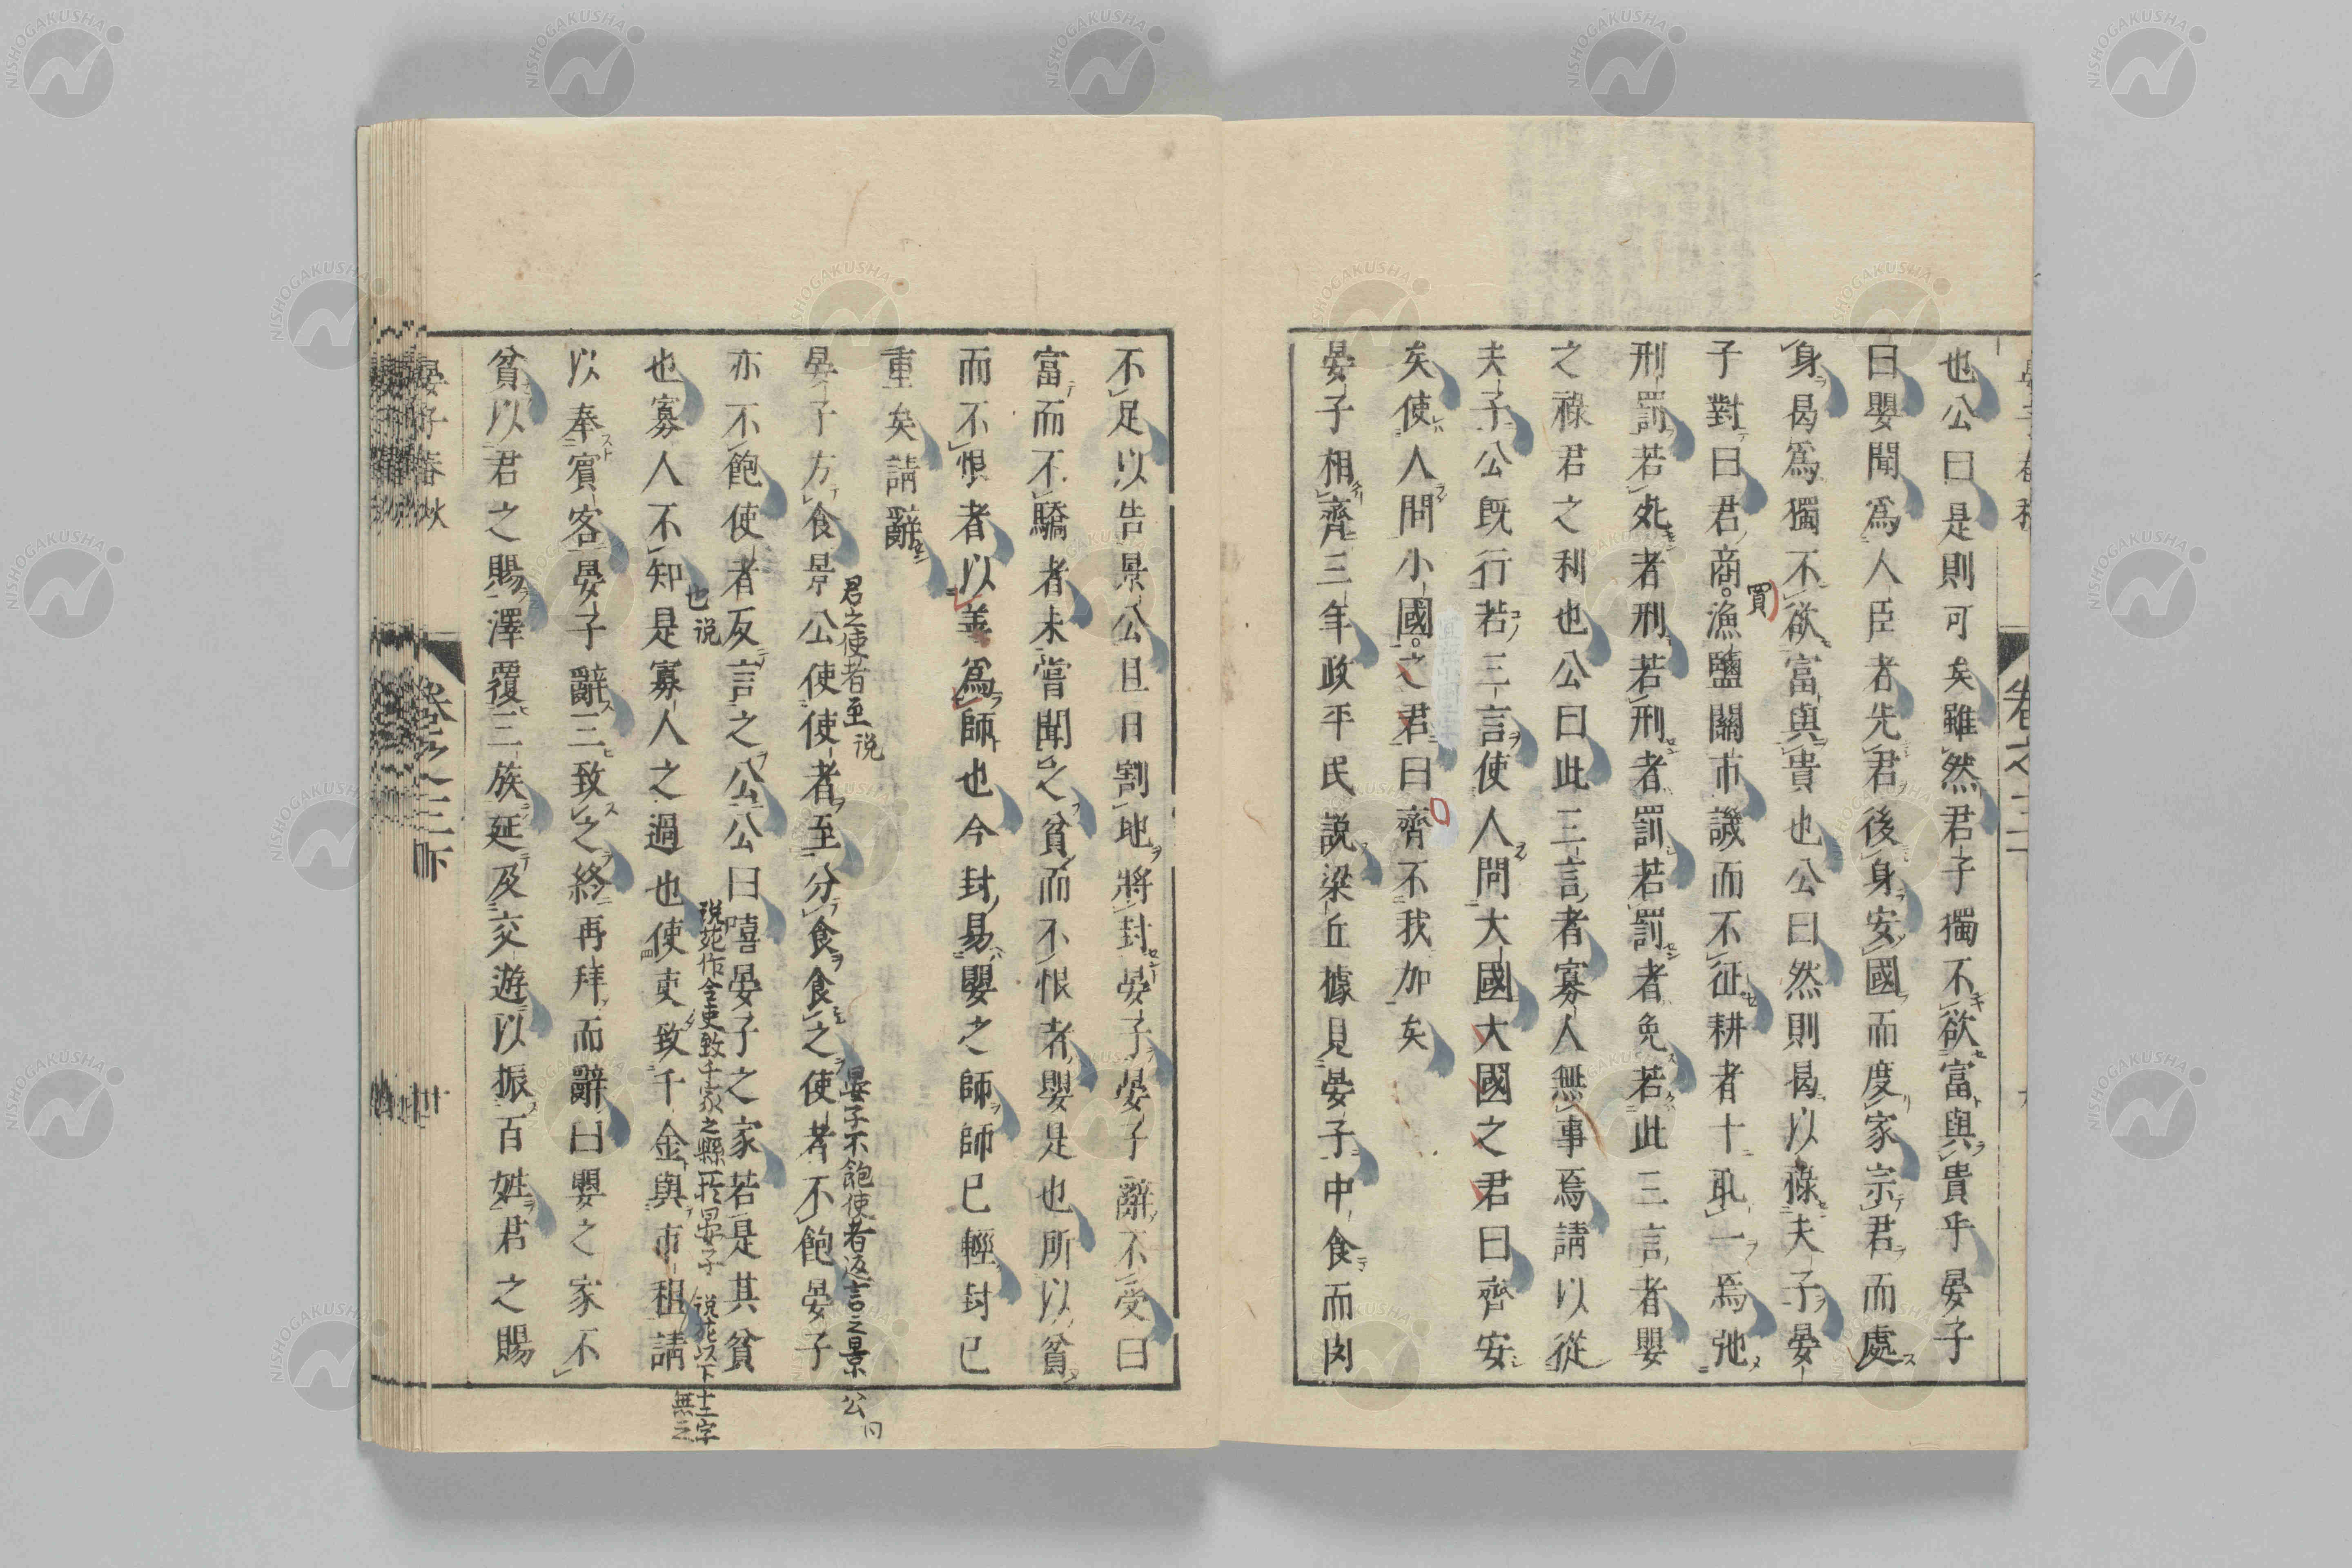 也公曰是則可矣雖然君子獨不欲富與貴乎晏子
曰嬰聞爲人臣者先君後身安國而度家宗君而處
身曷爲獨不欲富與貴也公曰然則曷以祿夫子晏
子對曰君商漁鹽關市譏而不征耕者十取一焉弛
買
刑罰若死者刑若刑者罰若罰者免若此三言者嬰
之祿君之利也公曰此三言者寡人無事焉請以從
夫子公既行若三言使人問大國大國之君曰齊安
矣使人問小國之君曰齊不我加矣
晏子相齊三年政平民説梁丘據見晏子中食而肉
不足以告景公旦日割地將封晏子晏子辭不受曰
富而不驕者未嘗聞之貧而不恨者嬰是也所以貧
而不恨者以善爲師也今封易嬰之師師已輕封已
重矣請辭
君之使者至 说
晏子不飽使者返言之景公曰
晏子方食景公使使者至分食食之使者不飽晏子
亦不飽使者反言之公公曰嘻晏子之家若是其貧
也说
说苑作令吏致千家之縣一於晏子
说苑以下十二字無之
也寡人不知是寡人之過也使吏致千金與市租請
以奉賓客晏子辭三致之終再拜而辭曰嬰之家不
貧以君之賜澤覆三族延及交遊以振百姓君之賜
晏子春秋
卷之三下
廿
NISHOGAKUSHA